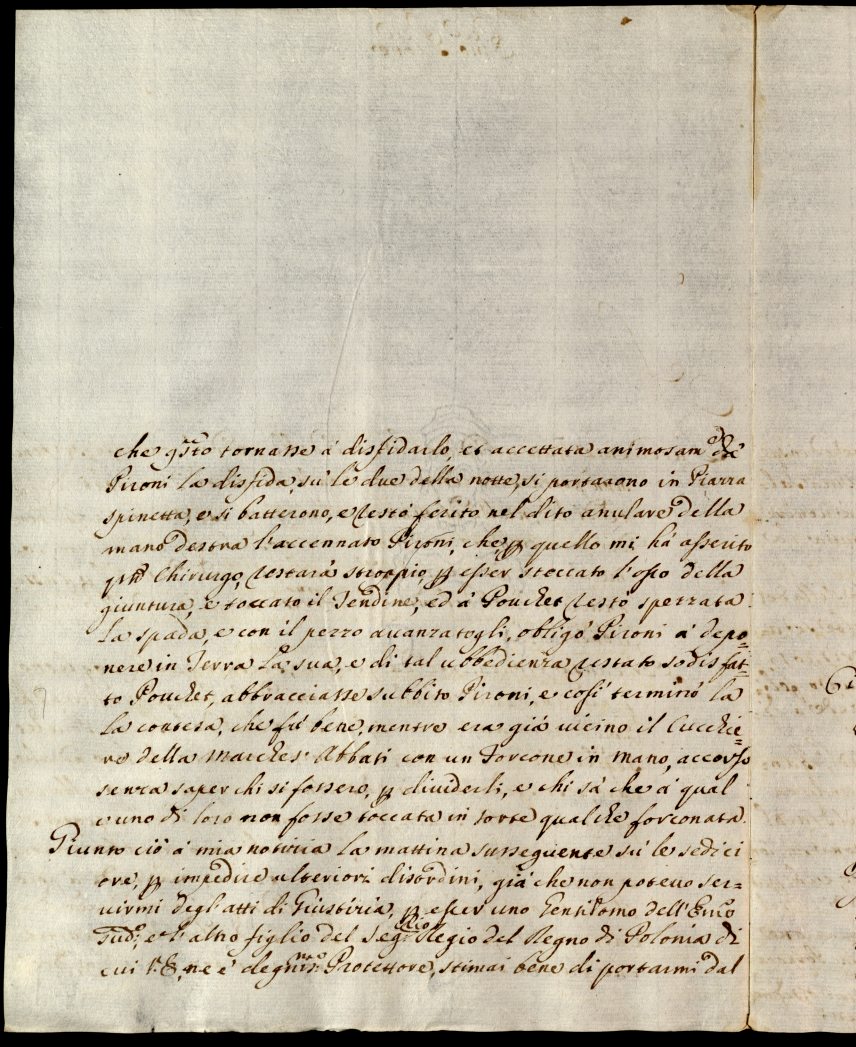 che q.sto tornasse à disfidarlo, et accettata animosam.e da
Pironi la disfida, sù le due della notte, si portarono in Piazza
spinetta, e si batterono, e restò ferito nel dito anulare della
mano destra l'accennato Pironi, che p quello mi hà asserito
q.sto Chirurgo, restarà stroppio, p esser stoccato l'osso della
giuntura, e toccato il Tendine, ed à Pouchet restò spezzata
la spada, e con il pezzo avanzatogli, obligò Pironi à depo=
nere in Terra la sua, e di tal ubbedienza restato sodisfat=
to Pouchet, abbracciasse subbito Pironi, e così terminò la
la contesa, che fù bene, mentre era già vicino il Cucchie=
re della Marches.a Abbati con un Forcone in mano, accorso
senza saper chi si fossero, p dividerli, e chi sà che à qual
c'uno di loro non fosse toccata in sorte qualche forconata.
Giunto ciò à mia notitia la mattina susseguente sù le sedici
ore, p impedire ulteriori disordini, già che non potevo ser=
virmi degl'atti di Giustizia, p esser uno Gentilomo dell'Em.o
Jud.e, e l'altro figlio del Seg.rio Regio del Regno di Polonia di
cui V.E. ne è degnis.mo Protettore, stimai bene di portarmi dal